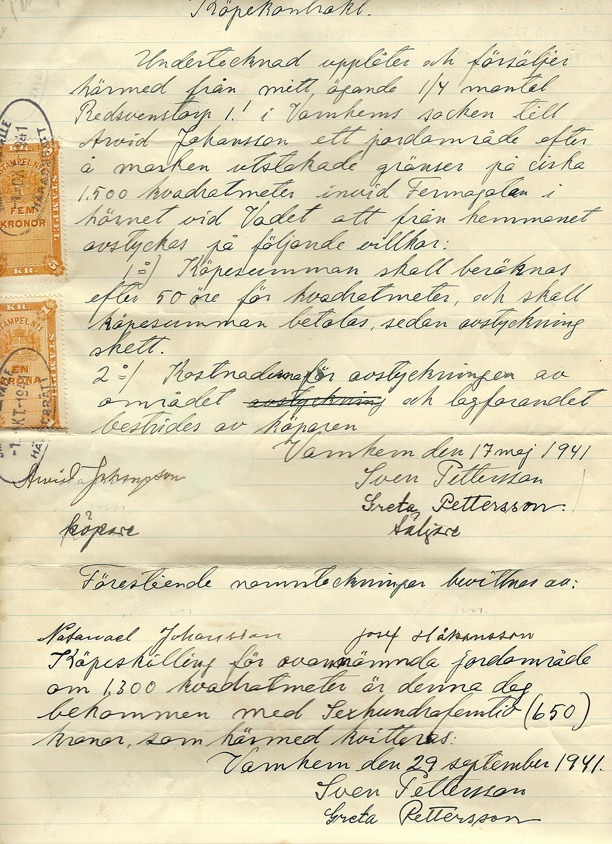 Köpekontrakt.
Undertecknad upplåter och försäljer
härmed från mitt, ägande 1/4 mantal
Redsvenstorp 1.! i Varnhems socken till
Arvid Johansson ett jordområde efter
å marken utstakade gränser på ciska
1,500 kvadratmeter invid Fermagatan i
hörnet vid Vadet att från hemmanet
avstyckas på följande villkor:
1:o) Köpesumman skall beräknas
efter 50 öre för kvadratmeter, och skall
köpesumman betalas, sedan avstyckning
skett.
2:o/ Kostnaderna för avstyckningen av
området avstyckning och lagfarandet
bestrides av köparen
Varnhem den 17 maj 1941
Arvid Johansson
Sven Pettersson
Greta Pettersson.
köpare
säljare
Förestående namnteckningar bevittnas av:
Natanael Johansson
Josef Håkansson
Köpeskilling för ovannämnda jordområde
om 1,300 kvadratmeter är denna dag
bekommen med Sexhundrafemtio (650)
kronor, som härmed kvitteras:
Varnhem den 29 september 1941.
Sven Pettersson
Greta Pettersson
STÄMPEL
FEM
KRONOR
KR.
5
KR.
1
STÄMPEL
EN
KRONA